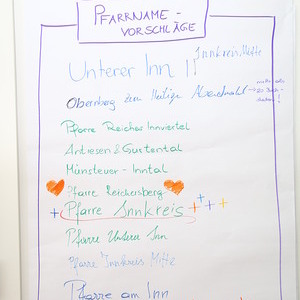 PFARRNAME -
VORSCHLÄGE
Unterer Inn || Innkreis Mitte
zum Heilige
Pfarre Reicher Innviertel
Antiesen & Gurtental
Münsteuer - Inntal
Pfarre Reichersberg
Pfarre Innkreis
Pfarre Unterer Inn
Pfarre Innkreis Mitte
Pfarre am Inn